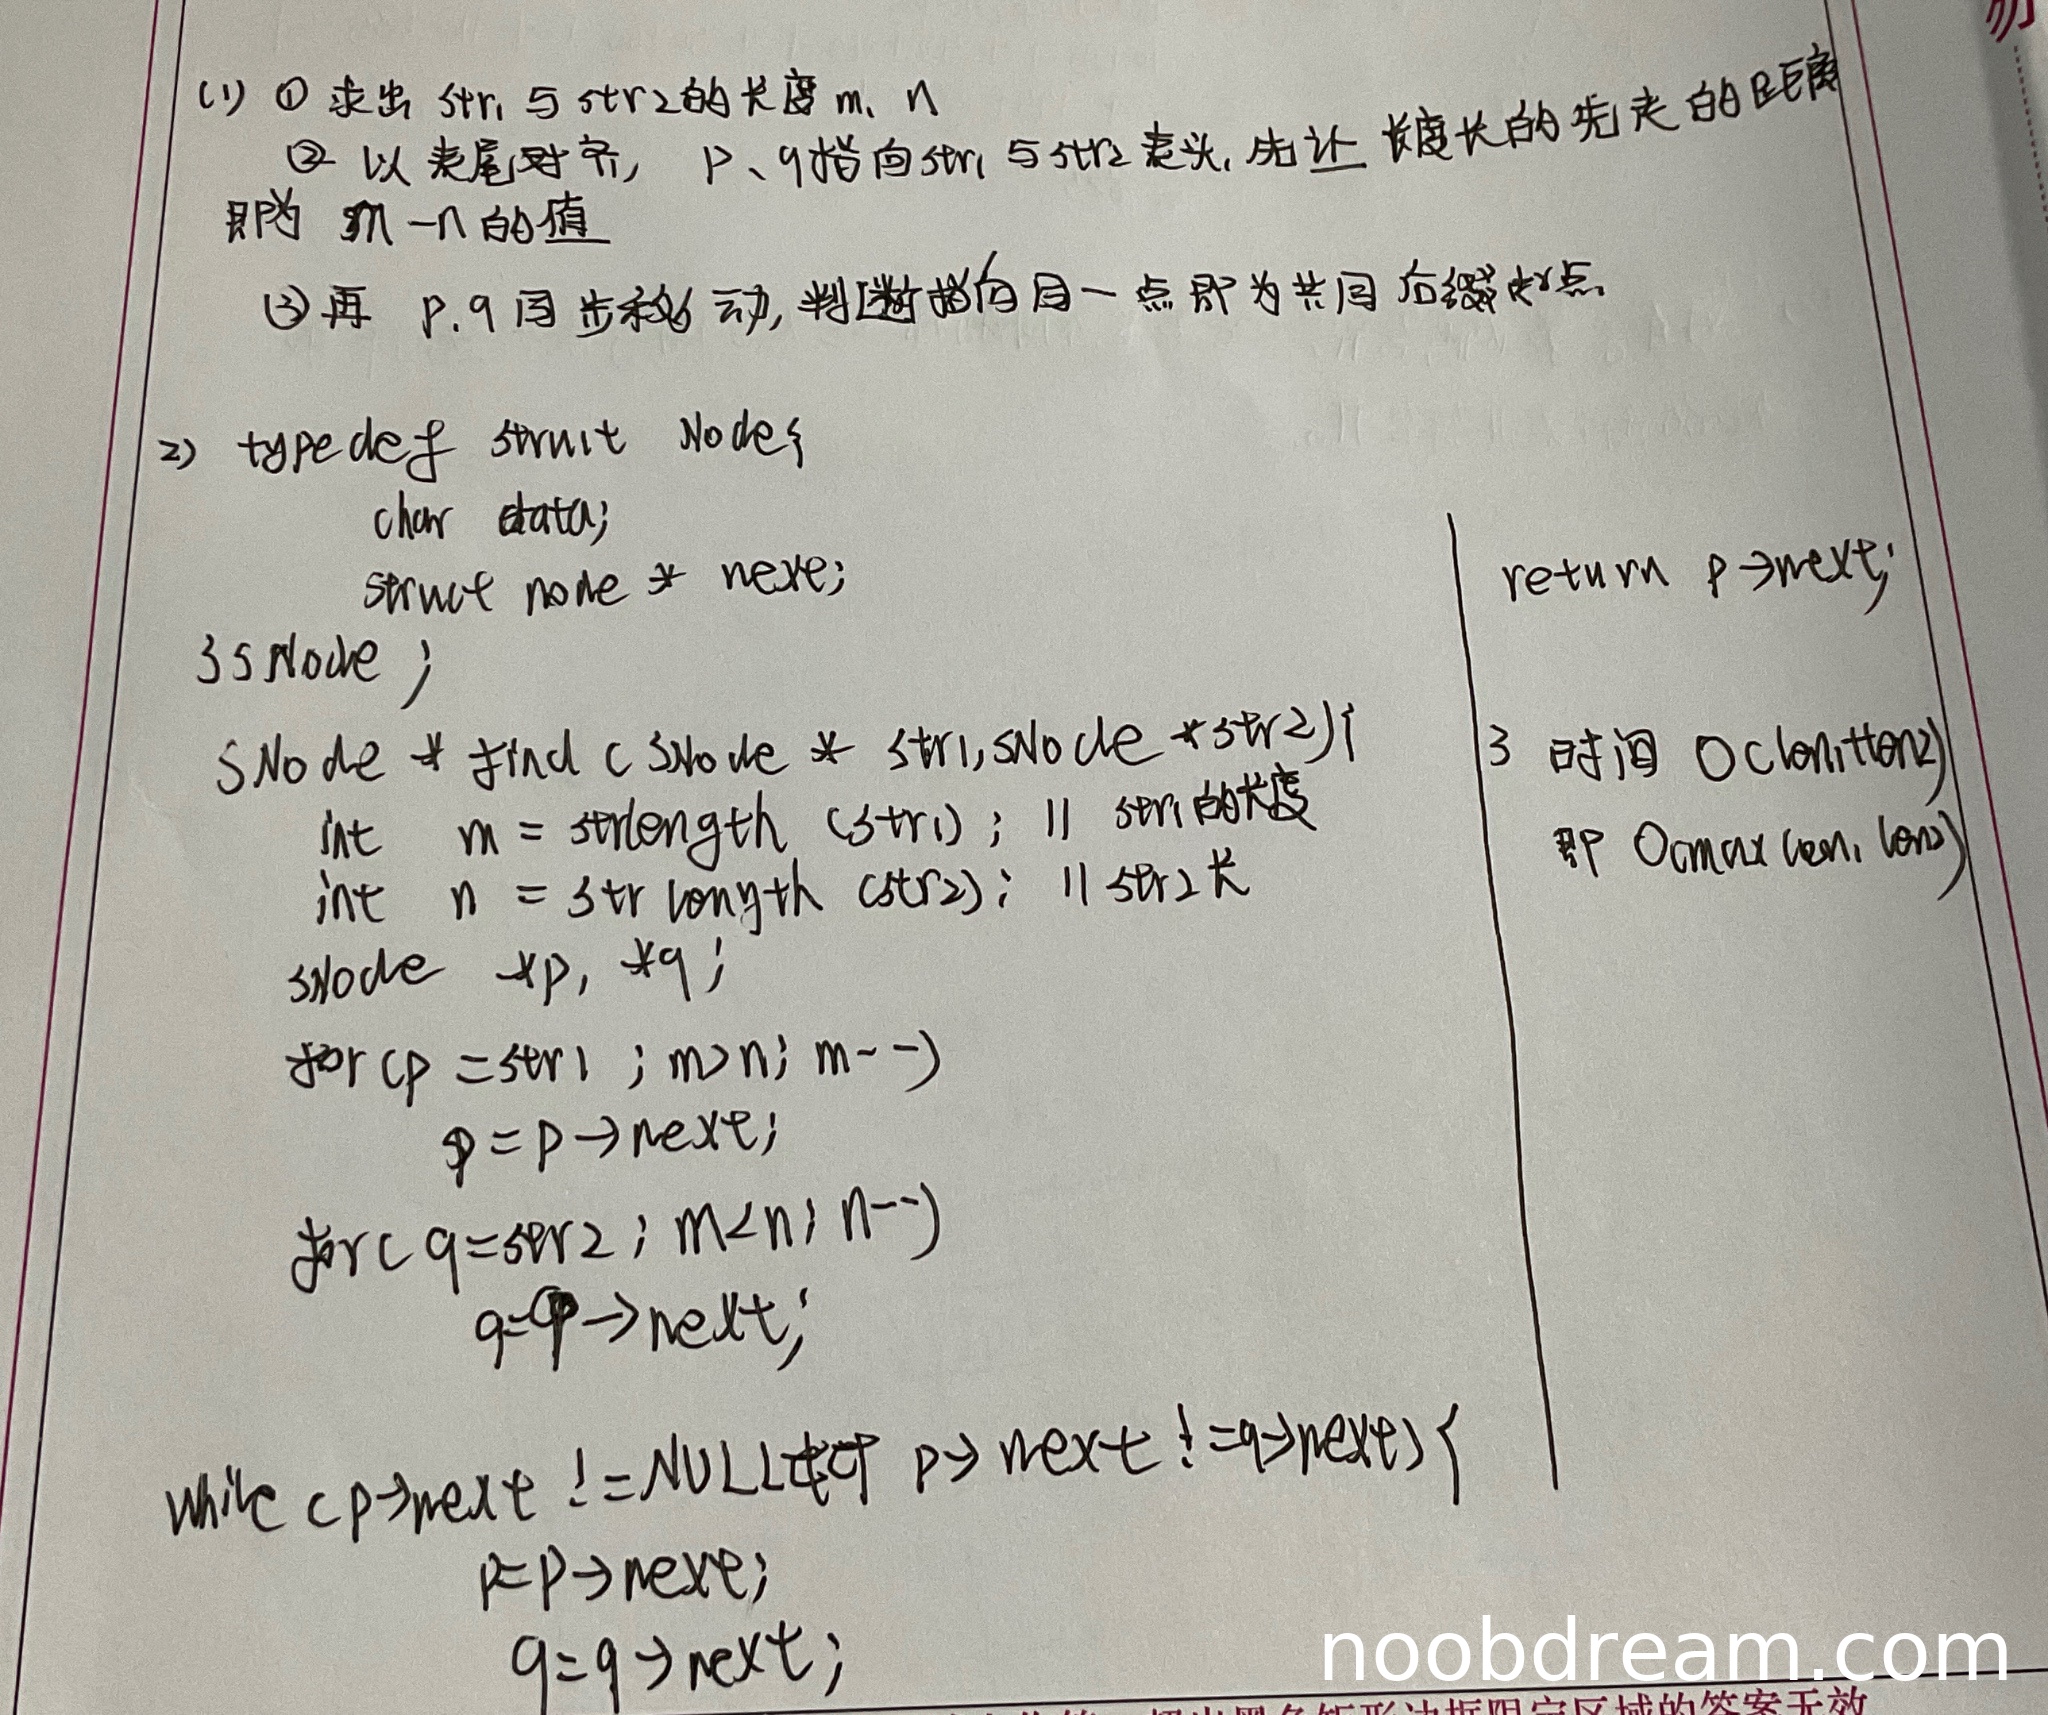 (1) ① 求出 str1 与 str2的长度 m、n
② 以表尾对齐, p、q指向str1 与str2表头, 先让 长度长的先走的距离
即为 m-n 的值
③ 再 p.q 同步移动, 判断指向同一点即为共同后缀起点.
2) typedef struct Node{
char data;
struct node * next;
}SNode ;
SNode * find ( SNode * str1, SNode *str2){
int m = strlength (str1) ; // str1的长度
int n = str length (str2) ; // str2长
SNode *p, *q ;
for (p = str1 ; m>n; m--)
p = p->next;
for ( q=str2 ; m<n; n--)
q=q->next;
while ( p->next != NULL && p-> next !=q->next) {
p=p->next;
q=q->next;
return p->next;
3 时间 O(len1+len2)
即 O(max(len1, len2)
noobdream.com
超出黑色矩形边框限定区域的答案无效